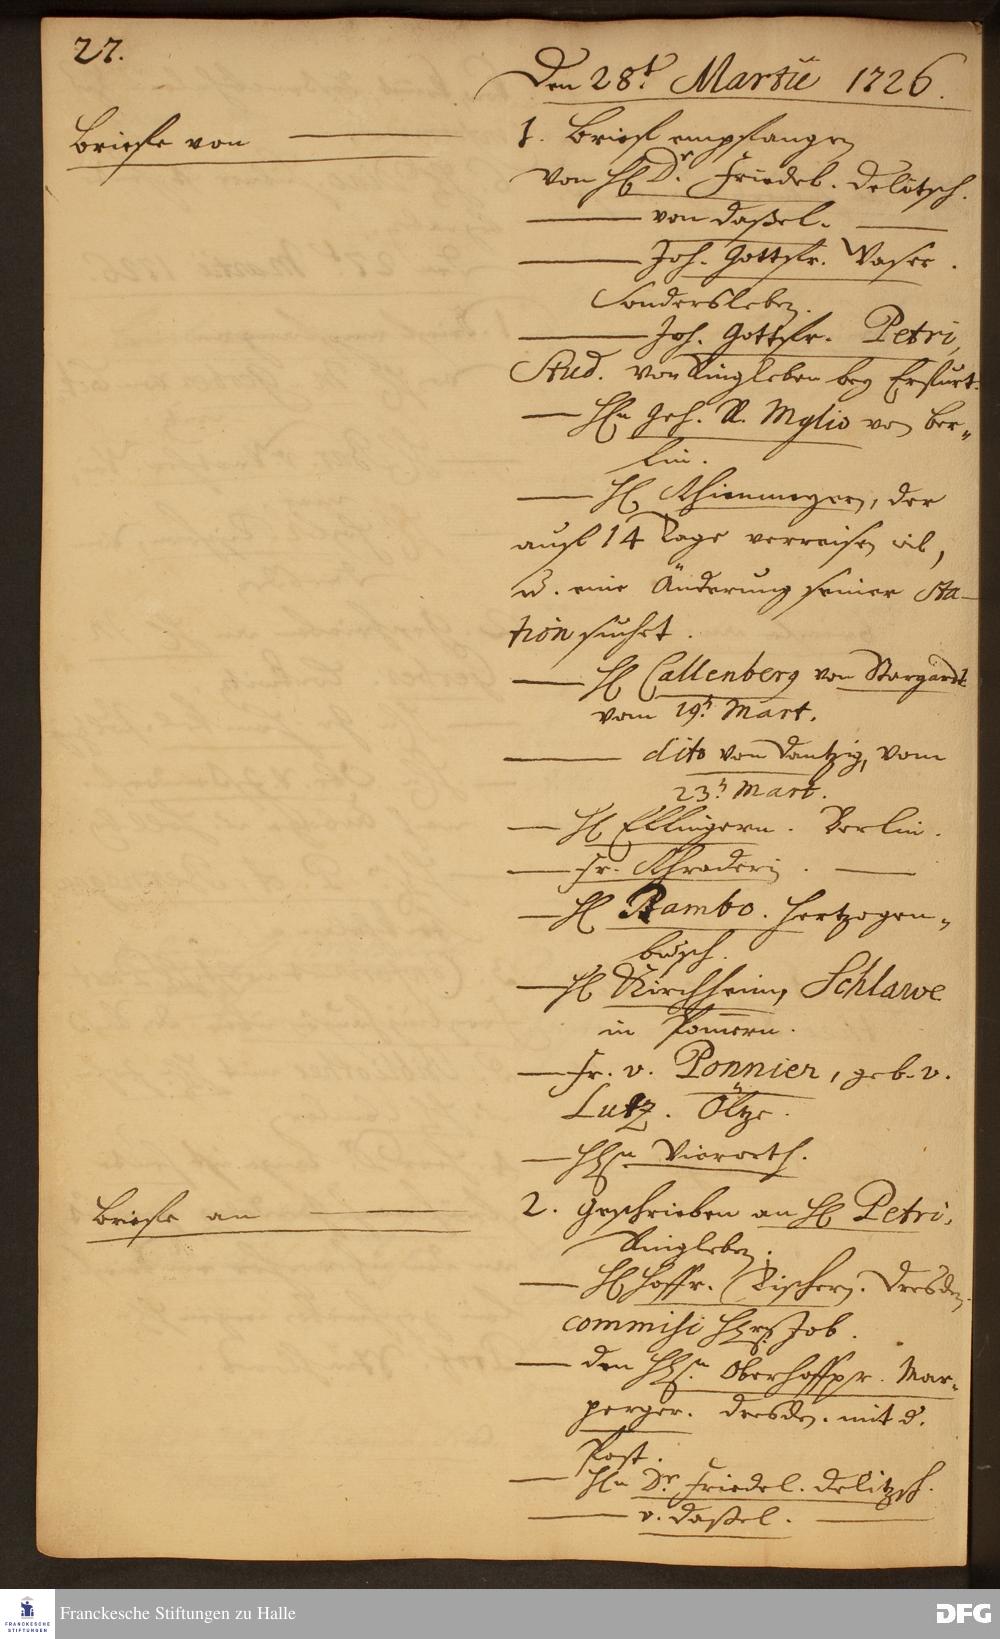 27.
Den 28t. Martii 1726.
Briefe von
1. Brief empfangen
von H. Dr. Friedel. Delitsch.
von Daßel.
Joh. Gottfr. Vaser.
Sondersleben.
Joh. Gottfr. Petri,
Stud. von Ringleben bey Erfurt.
Hn Geh. R. Mylio von Ber-
lin.
H. Thienmeyer, der
auf 14 Tage verreisen wil,
u. eine Änderung seiner Sta-
tion suchet.
H. Callenberg von Stargardt
vom 19t. Mart.
dito von Dantzig, vom
23t. Mart.
H. Ellingern. Berlin.
Fr. Schraderin.
H. Rambo. Hertzogen-
busch.
H. Kirchheim, Schlawe
in Pomern.
Fr. v. Ponnier, geb. v.
Lutz. Öltze.
Vieroth.
Briefe an
2. Geschrieben an H. Petri,
Ringleben.
H. Hoffr. Tischern. Dresden.
commisi Job.
den Oberhoffpr. Mar-
perger. Dresden. mit d.
Post.
Hn Dr. Friedel. Delitzsch.
v. Daßel.
Franckesche Stiftungen zu Halle
FRANCKESCHE
STIFTUNGEN
DFG